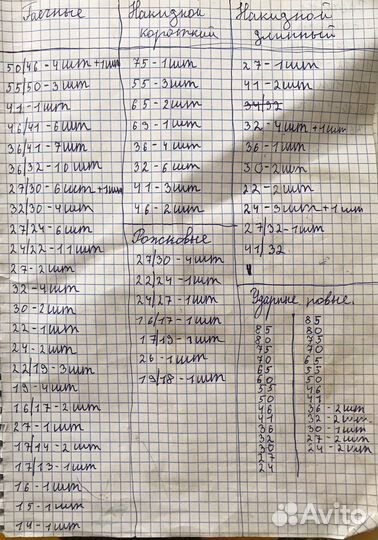 Гаечные
50/46 - 4 шт + 1 шт
55/50 - 3 шт
41 - 1 шт
46/41 - 6 шт
36/41 - 7 шт
36/32 - 10 шт
27/30 - 6 шт + 1 шт
32/30 - 4 шт
27/24 - 6 шт
24/22 - 11 шт
27 - 2 шт
32 - 4 шт
30 - 2 шт
22 - 1 шт
24 - 2 шт
22/19 - 3 шт
19 - 4 шт
16/17 - 2 шт
27 - 1 шт
17/14 - 2 шт
17/13 - 1 шт
16 - 1 шт
15 - 1 шт
14 - 1 шт
Накидной
короткий
75 - 1 шт
55 - 3 шт
65 - 2 шт
69 - 1 шт
36 - 4 шт
32 - 6 шт
41 - 3 шт
46 - 2 шт
Рожковые
27/30 - 4 шт
22/24 - 1 шт
24/27 - 1 шт
16/17 - 1 шт
17/19 - 1 шт
26 - 1 шт
19/18 - 1 шт
Накидной
длинный
27 - 1 шт
41 - 2 шт
34/32
32 - 4 шт + 1 шт
36 - 1 шт
30 - 2 шт
22 - 2 шт
24 - 3 шт + 1 шт
27/32 - 1 шт
41/32
Ударные новые.
85
80
75
70
65
60
55
50
46
41
36
32
30
27
24
85
80
75
70
65
55
50
46
41
36 - 2 шт
32 - 2 шт
30 - 1 шт
27 - 2 шт
24 - 2 шт
Avito